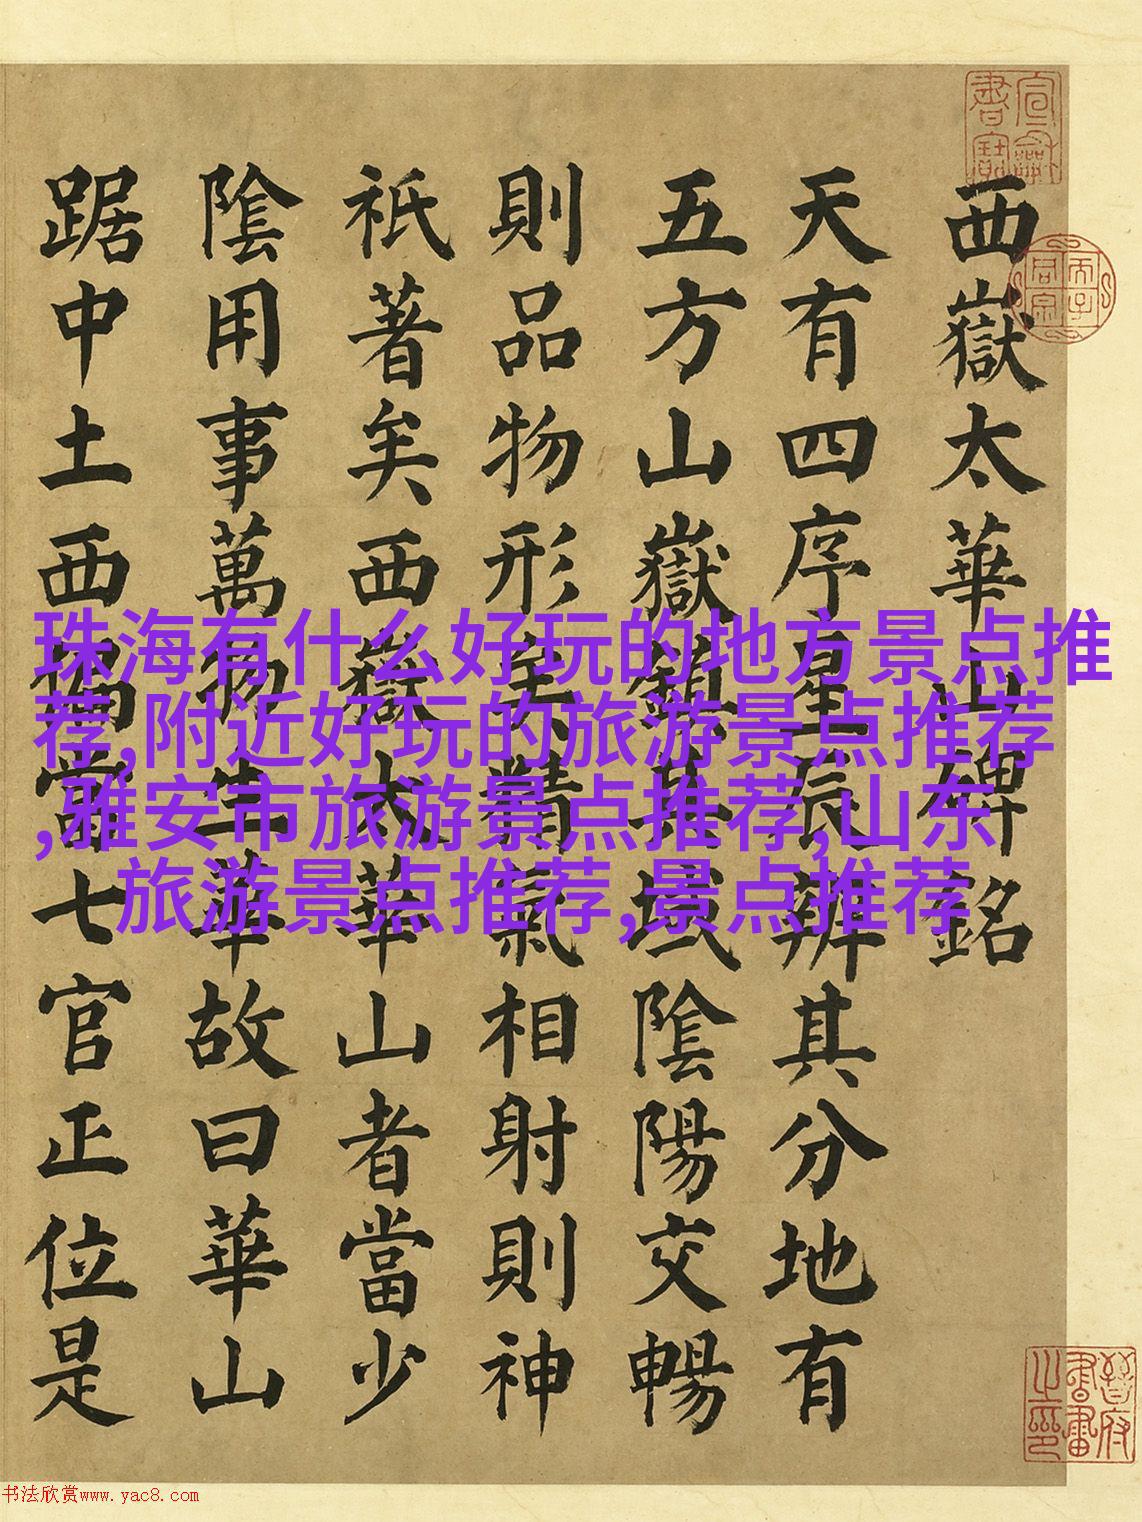 西嶽太華山碑銘
天有四序星辰辨其分地有
五方山嶽鎮其域陰陽交暢
則品物形矣精氣相射則神
祇著矣西嶽太華山者當少
陰用事萬物生華故曰華山
踞中土西偏當七官正位是
珠海有什么好玩的地方景点推
荐,附近好玩的旅游景点推荐
,雅安市旅游景点推荐,山东
旅游景点推荐,景点推荐
书法欣赏www.yac8.com